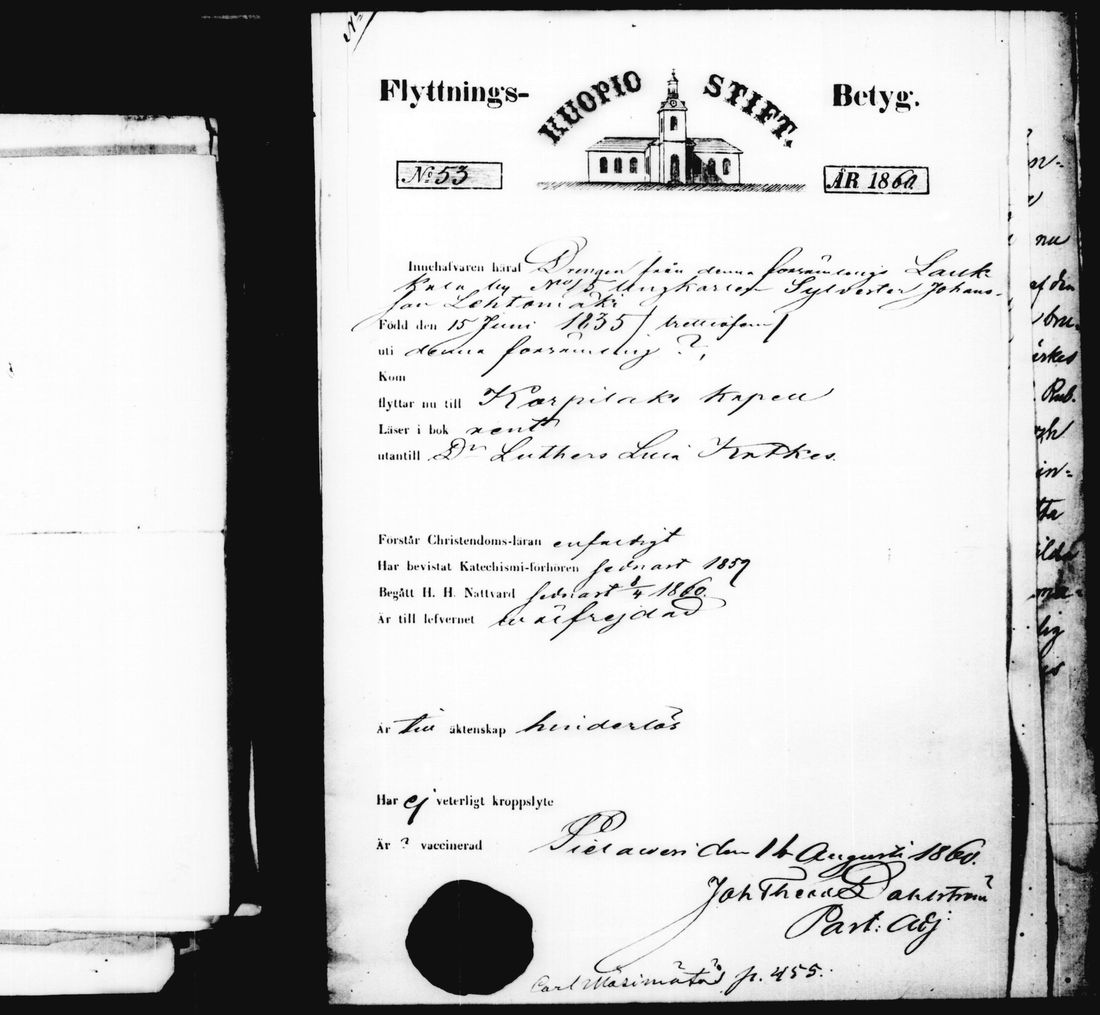 Flyttnings- KUOPIO STIFT. Betyg.
No 53 ÅR 1860
Innehafvaren häraf Drengen från denna församlings Lauk-
kala by No 15 Ungkarlen Sylvester Johans-
son Lehtomäki
Född den 15 Juni 1835 / trettiofem /
uti denna församling
Kom
flyttar nu till Karpilaks Kapell
Läser i bok rent
utantill Dr Luthers Lilla Katkes.
Förstår Christendoms-läran enfaldigt
Har bevistat Katechismi-förhören sednast 1859
Begått H. H. Nattvard sednast 8/4 1860.
Är till lefvernet wälfrejdad
Är till äktenskap hinderlös
Har ej veterligt kroppslyte
Är ? vaccinerad
Pielavesi den 16 Augusti 1860.
Joh Theod Dahlström
Past: Adj:
Carl p. 455.